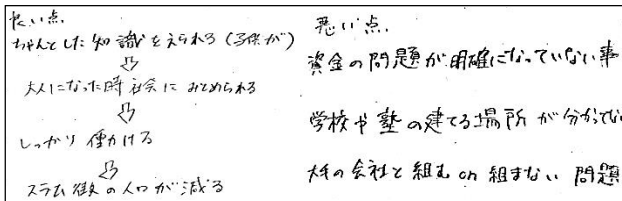 良い点.
ちゃんとした知識をえられる(子供が)
⇩
大人になった時社会にみとめられる
⇩
しっかり働ける
⇩
スラム街の人口が減る
悪い点.
資金の問題が明確になっていない事
学校や塾の建てる場所が分かってな
大手の会社と組む or 組まない 問題